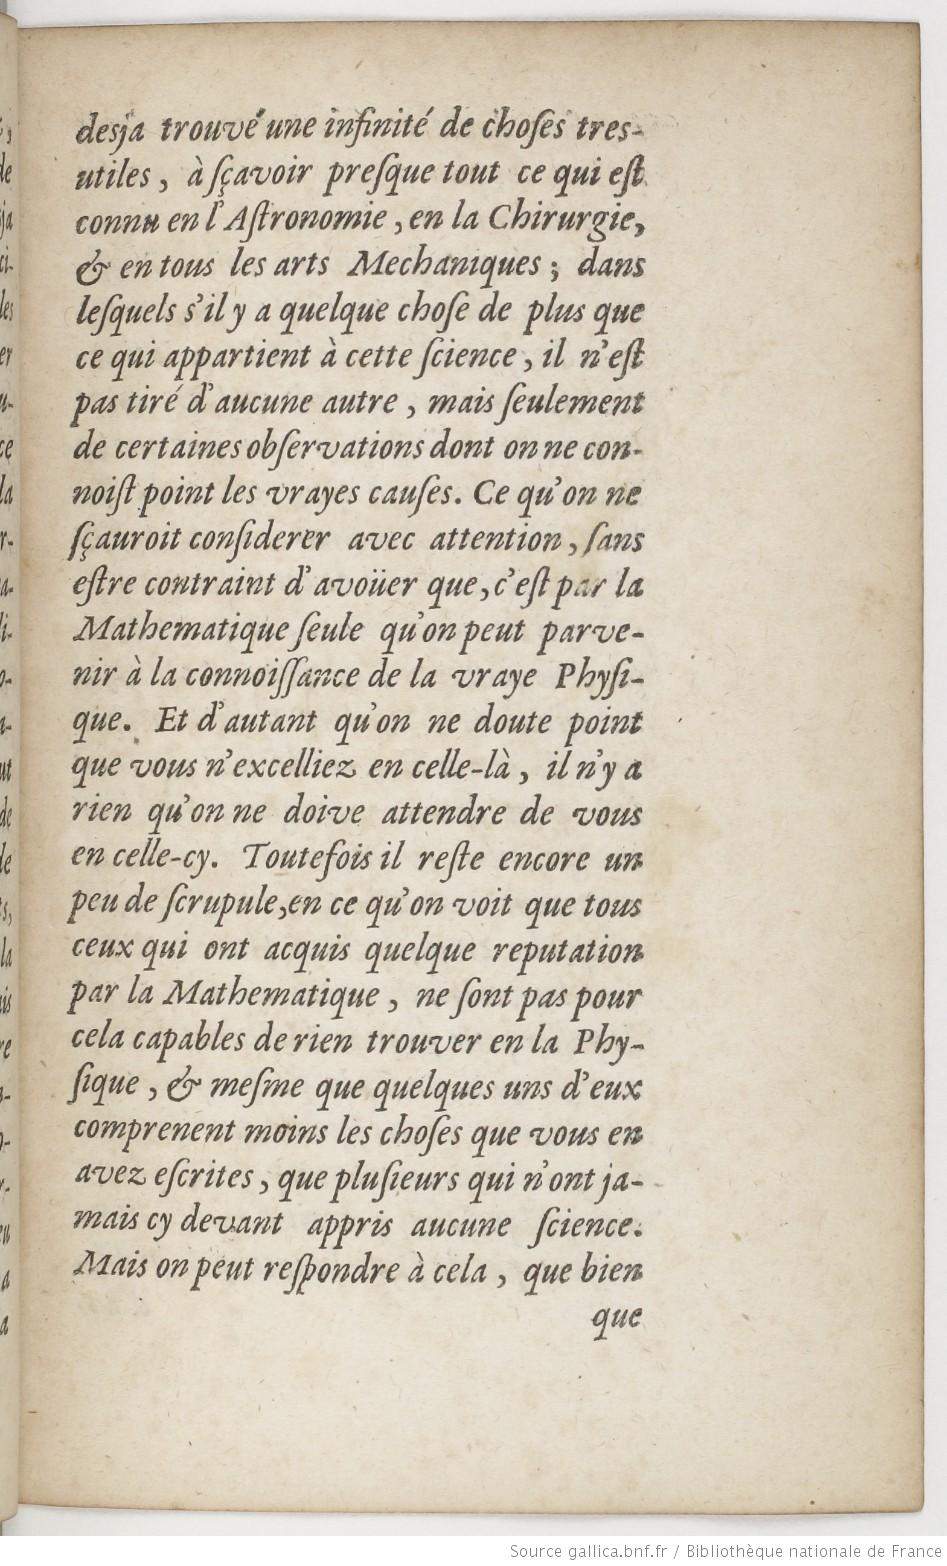 desja trouvé une infinité de choſes tres-
utiles, à ſçavoir preſque tout ce qui eſt
connu en l'Aſtronomie, en la Chirurgie,
& en tous les arts Mechaniques; dans
leſquels s'il y a quelque choſe de plus que
ce qui appartient à cette ſcience, il n'eſt
pas tiré d'aucune autre, mais ſeulement
de certaines obſervations dont on ne con-
noiſt point les vrayes cauſes. Ce qu'on ne
ſçauroit conſiderer avec attention, ſans
eſtre contraint d'avoüer que, c'eſt par la
Mathematique ſeule qu'on peut parve-
nir à la connoiſſance de la vraye Phyſi-
que. Et d'autant qu'on ne doute point
que vous n'excelliez en celle-là, il n'y a
rien qu'on ne doive attendre de vous
en celle-cy. Toutefois il reſte encore un
peu de ſcrupule, en ce qu'on voit que tous
ceux qui ont acquis quelque reputation
par la Mathematique, ne ſont pas pour
cela capables de rien trouver en la Phy-
ſique, & meſme que quelques uns d'eux
comprenent moins les choſes que vous en
avez eſcrites, que pluſieurs qui n'ont ja-
mais cy devant appris aucune ſcience.
Mais on peut reſpondre à cela, que bien
que
Source gallica.bnf.fr / Bibliothèque nationale de France